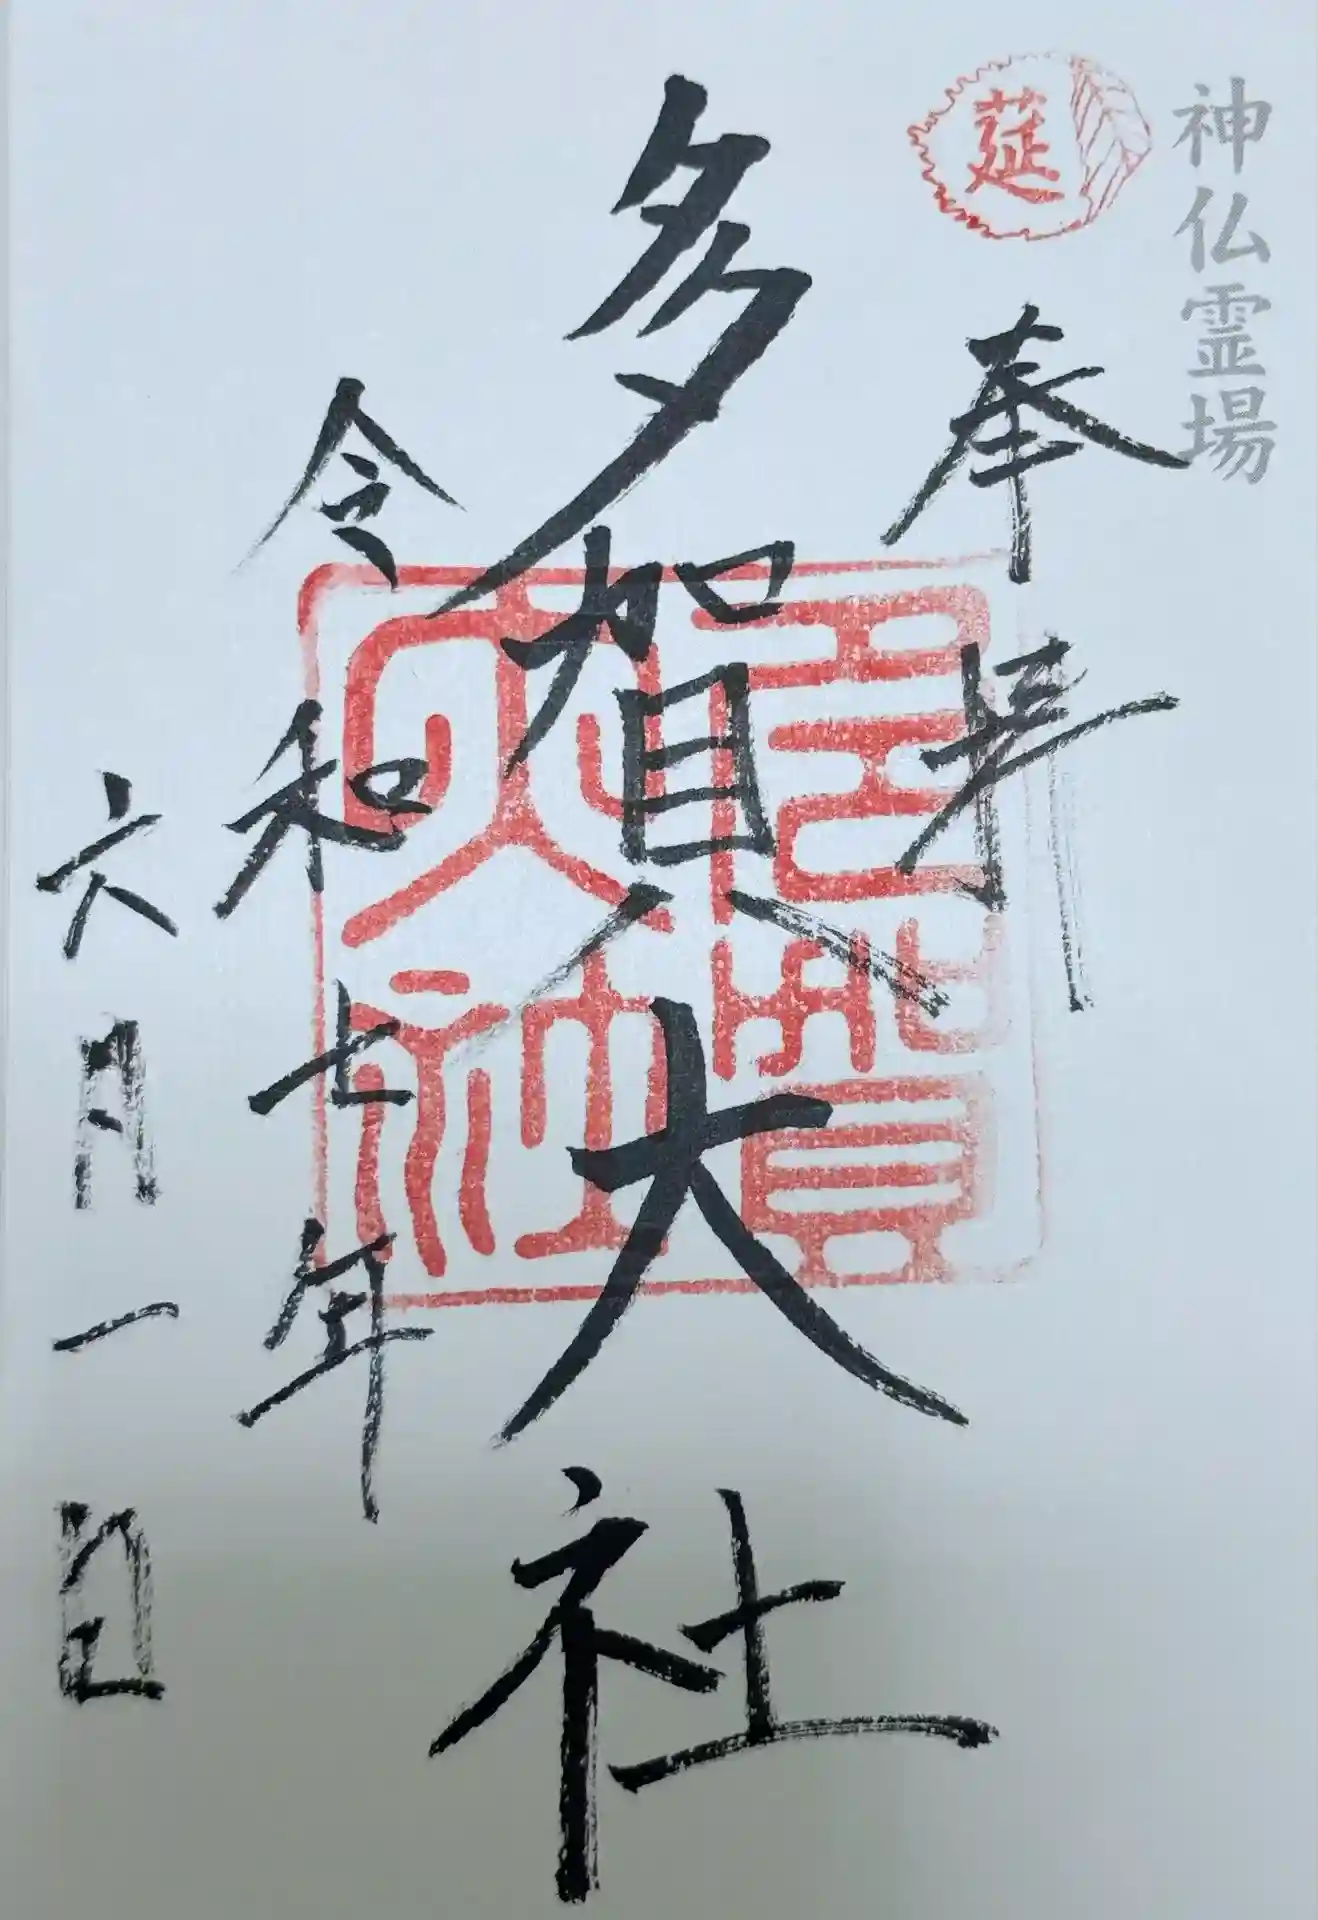 神仏霊場
莚
奉拝
多賀大社
多賀大社
令和七年
六月一日